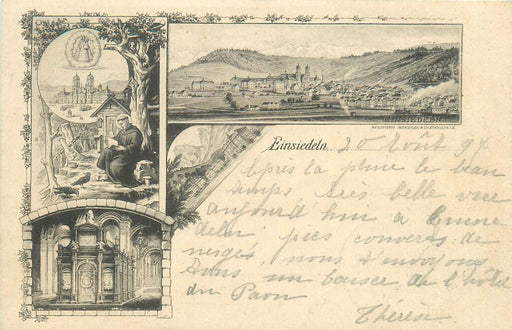 EINSIEDELN
Einsiedeln. 20 Août 97.
Après la pluie le beau
temps très belle vue
aujourd'hui a
pics couverts de
neiges, nous t'envoyons
tous un baiser de l'hôtel
du Paon
Thérèse